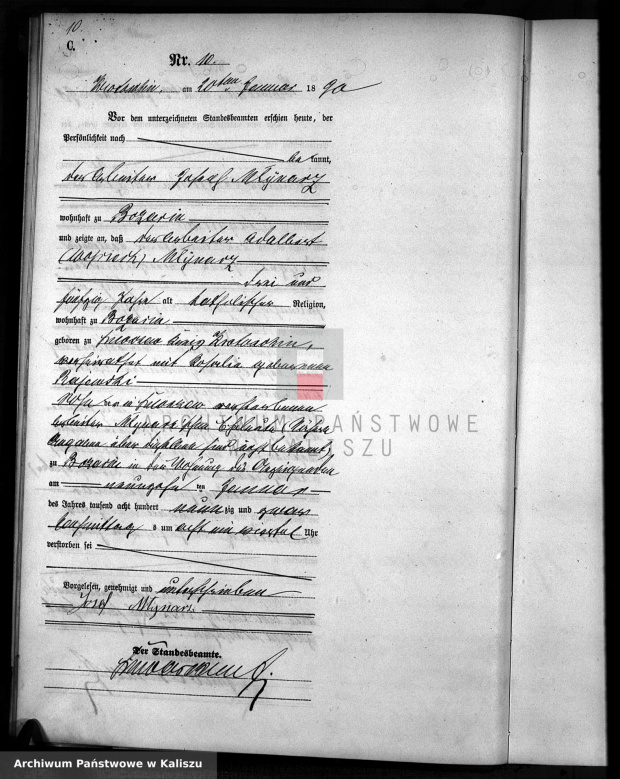 10.
C.
Nr. 10.
Krotoschin, am 20ten Januar 1890
Vor dem unterzeichneten Standesbeamten erschien heute, der
Persönlichkeit nach
bekannt,
der Arbeiter Joseph Młynarz
wohnhaft zu Bozacin
und zeigte an, daß der Arbeiter Adalbert
Młynarz
drei und
fünfzig Jahre alt katholischer Religion,
wohnhaft zu Bozacin
geboren zu Krotoschin,
verheirathet mit geborenen
Rajewski
Sohn verstorbenen
Arbeiter Młynarz
zu Bozacin in der Wohnung des
am neunzehnten Januar
des Jahres tausend acht hundert neunzig und zwar
Vormittag s um acht ein viertel Uhr
verstorben sei
Vorgelesen, genehmigt und unterschrieben
Josef Młynarz
Der Standesbeamte.
ARCHIWUM PAŃSTWOWE
W KALISZU
Archiwum Państwowe w Kaliszu